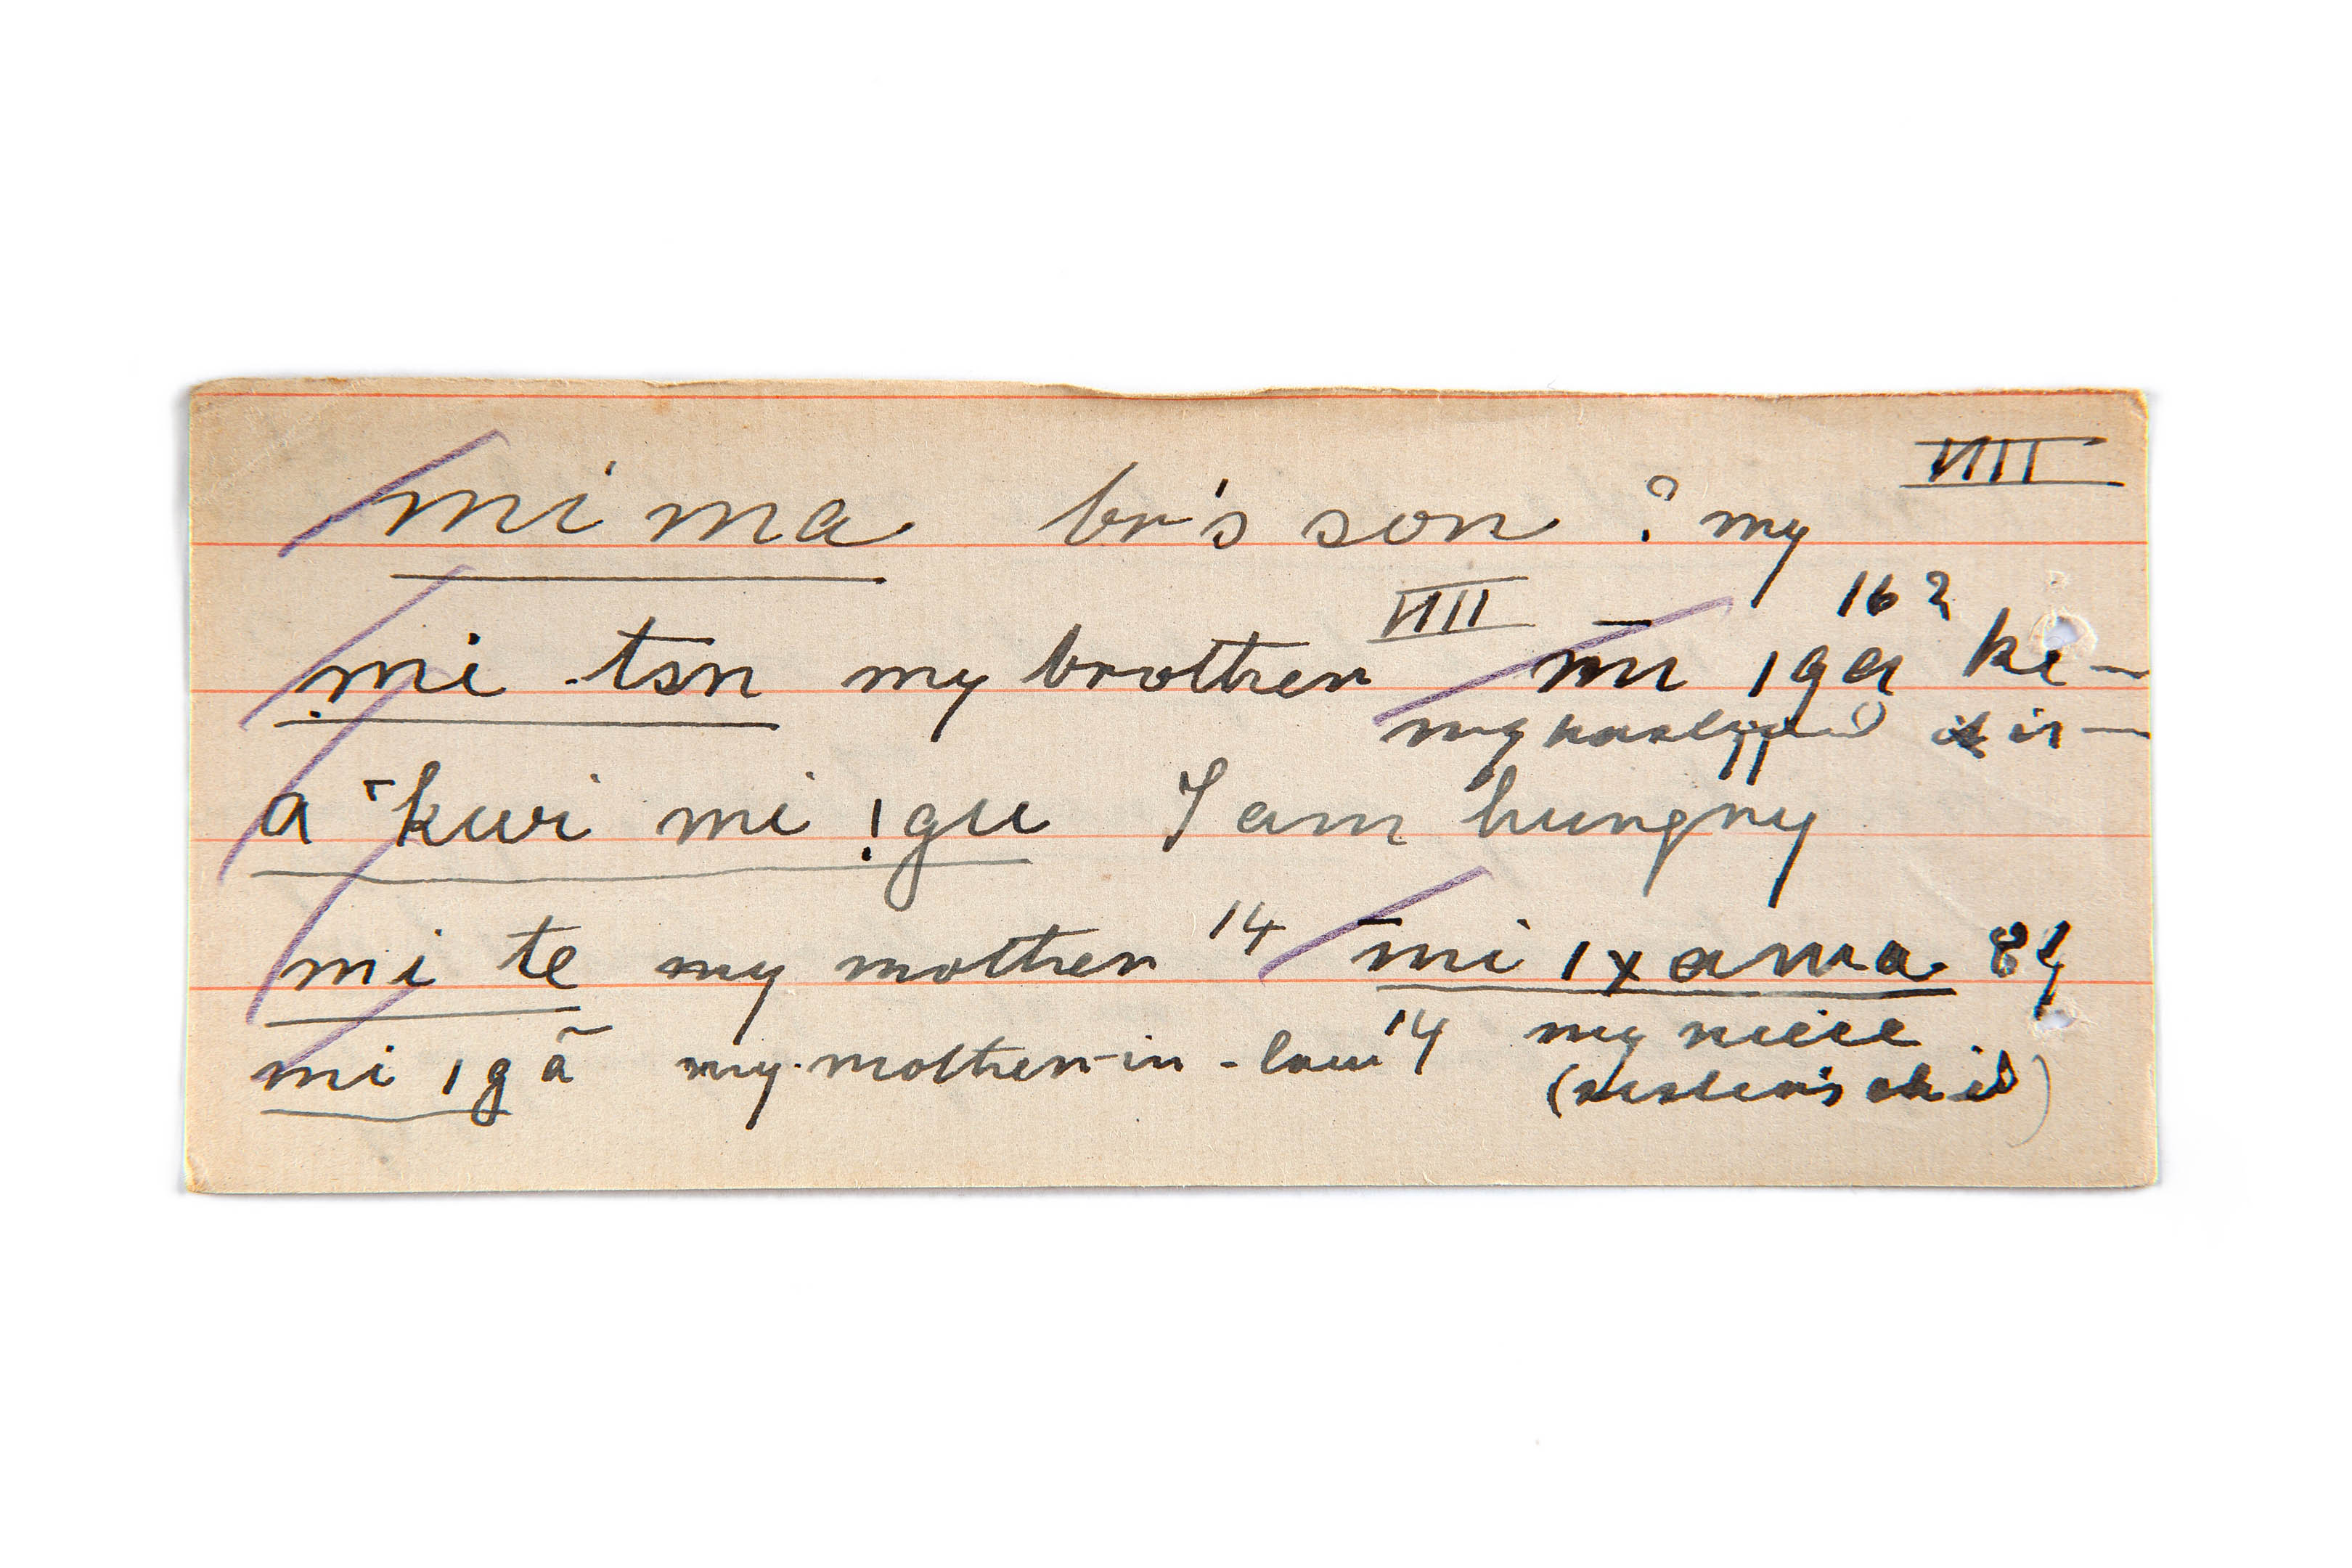 VIIII
mi'ma br's son ? my
mi tsn my brother VIIII mi ǀga ke- 16?
my is-
a ˉkwi mi !gu I am hungry
mi te my mother 14 mi ǀxama
mi ǀgã my mother-in-law 14 my niece
(sister's child)